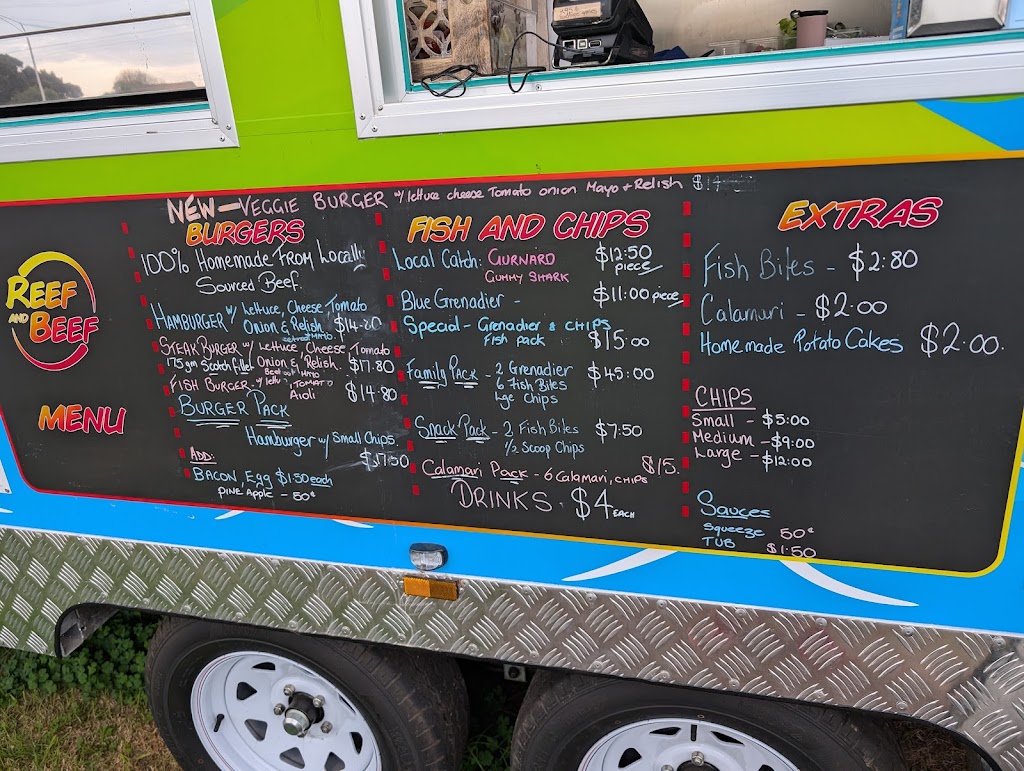 NEW - VEGGIE BURGER w/ lettuce cheese Tomato onion Mayo + Relish
REEF
AND
BEEF
MENU
BURGERS
100% Homemade FROM Locally
Sourced Beef.
HAMBURGER w/ Lettuce, Cheese, Tomato
Onion & Relish $14.80
STEAK BURGER w/ Lettuce, Cheese, Tomato
175gm Scotch fillet Onion & Relish. $17.80
FISH BURGER w/ lett, TOMATO
Aioli $14.80
BURGER PACK
Hamburger w/ Small Chips
$17.50
ADD:
BACON, Egg $1.50 each
PINE Apple - 50¢
FISH AND CHIPS
Local Catch: GURNARD $12:50
GUMMY SHARK piece
Blue Grenadier - $11:00 piece
Special - Grenadier & CHIPS
Fish pack $15:00
Family Pack - 2 Grenadier $45:00
6 Fish Bites
Lge Chips
Snack Pack - 2 Fish Bites $7:50
1/2 Scoop Chips
Calamari Pack - 6 Calamari, CHIPS $15.
DRINKS. $4 EACH
EXTRAS
Fish Bites - $2:80
Calamari - $2:00
Homemade Potato Cakes $2:00.
CHIPS
Small - $5:00
Medium - $9:00
Large - $12:00
Sauces
Squeeze 50¢
TUB $1.50